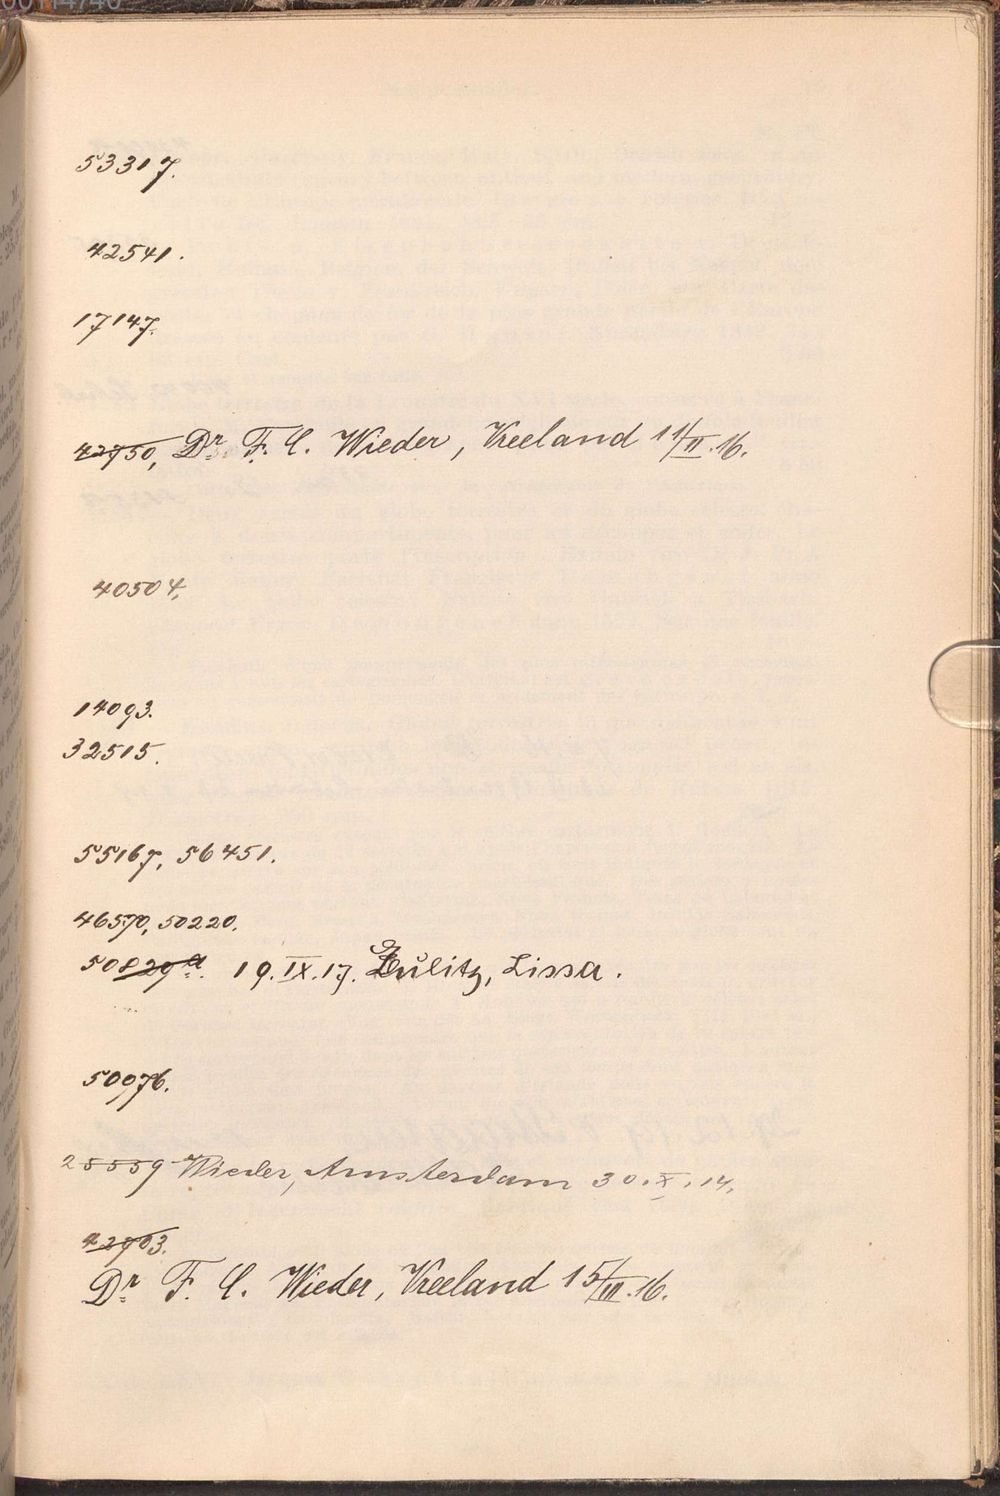 53317.
42541.
17147.
42750, Dr. F. C. Wieder, Vreeland 11/II.16.
40504.
14093.
32515.
55167, 56451.
46570, 50220.
50829a. 19.IX.17. Lissa.
50976.
25559 Wieder, Amsterdam 30.X.14.
42703.
Dr F. C. Wieder, Vreeland 15/III.16.